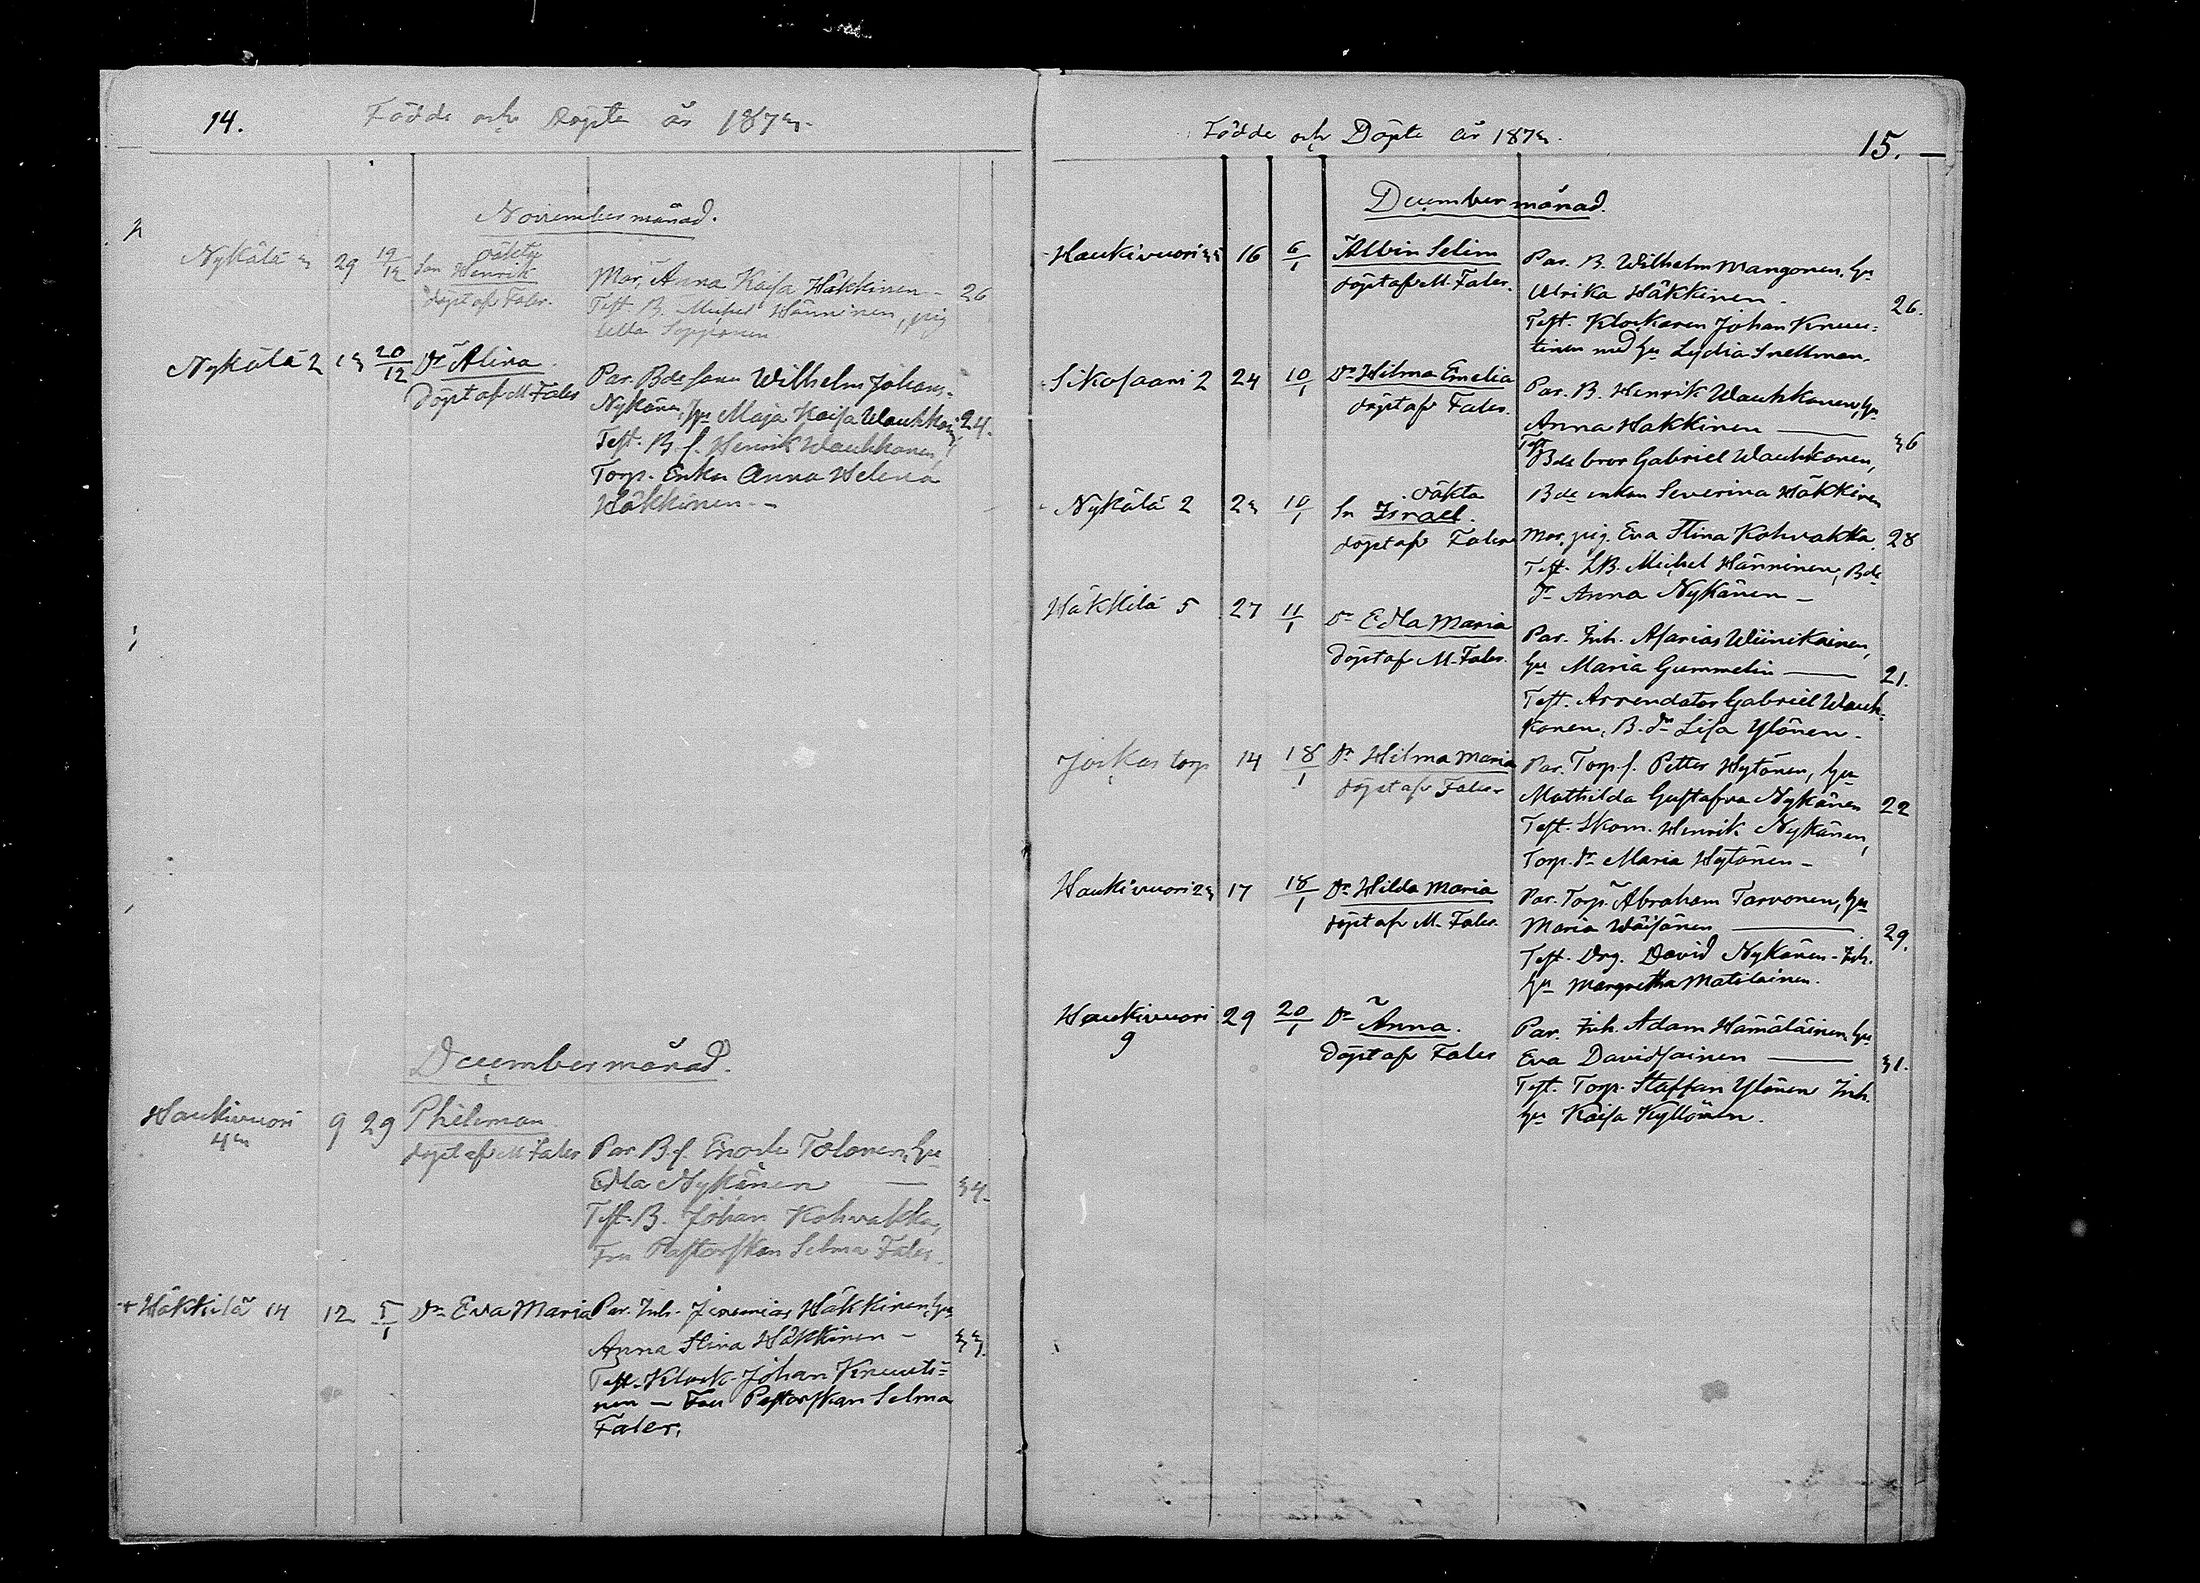 14.
Födde och Döpte år 1873.
November månad.
Nykälä 3 29 19/12 Son Henrik oäkta
döpt af Faler.
Mor, Anna Kaisa Häkkinen - 26
Test. B. Michel Hänninen, pig
Ulla
Nykälä 2 13 20/12 Dr Alina.
Döpt af M Faler
Par. Bde sonen Wilhelm Johans.
Nykänen, Hu Maja Kaisa Wauhkonen 24.
Test. B. s. Henrik Wauhkonen,
Torp. Enkan Anna Helena
Häkkinen. -
December månad.
Haukivuori 9 29 Phileman
döpt af M Faler
Par. B. s. Enock Tolonen, Hu
Edla Nykänen — 34.
Test. B. Johan Kohvakka,
Fru Pastorskan Selma Faler.
+ Häkkilä 14 12 5/1 Dr Eva Maria
Par. Inh. Jeremias Häkkinen, Hu
Anna Stina Häkkinen - 33.
Test. Klock. Johan Knuuti-
nen — Fru Pastorskan Selma
Faler.
Födde och Döpte år 1873.
15.
December månad.
Haukivuori 16 6/1 Albin Selim
döpt af M. Faler.
Par. B. Wilhelm Mangonen, Hu
Ulrika Häkkinen - 26.
Test. Klockaren Johan Knuu-
tinen med Hu Lydia Snellman.
Sikosaari 2 24 10/1 Dr Hilma Emelia
döpt af Faler.
Par. B. Henrik Wauhkonen, Hu
Anna Hakkinen — 36
Test Bde bror Gabriel Wauhkonen,
Bde enkan Severina Häkkinen
Nykälä 2 23 10/1 Sn Israel. oäkta
döpt af Faler
Mor, pig. Eva Stina Kohvakka. 28
Test. LB. Michel Hänninen, Bde
Dr Anna Nykänen -
Häkkilä 5 27 11/1 Dr Edla Maria
Döpt af M. Faler.
Par. Inh. Asarias Wiinikainen,
Hu Maria Gummelin — 21.
Test. Arrendator Gabriel Wauh-
konen, B. Dr Lisa Ylönen -
torp 14 18/1 Dr Hilma Maria
döpt af Faler
Par. Torp. s. Petter Hytönen, Hu
Mathilda Gustafva Nykänen 22
Test. Skom. Henrik Nykänen,
Torp. Dr Maria Hytönen -
Haukivuori 23 17 18/1 Dr Hilda Maria
döpt af M. Faler.
Par. Torp. Abraham Tarvonen, Hu
Maria Wäisänen — 29.
Test. Drg. David Nykänen - Inh.
Hu Margretha Matilainen.
Haukivuori 9 29 20/1 Dr Anna.
Döpt af Faler
Par. Inh. Adam Hämäläinen, Hu
Eva Davidsainen — 31.
Test. Torp. Staffan Ylönen Inh.
Hu Kaisa Kyllönen.